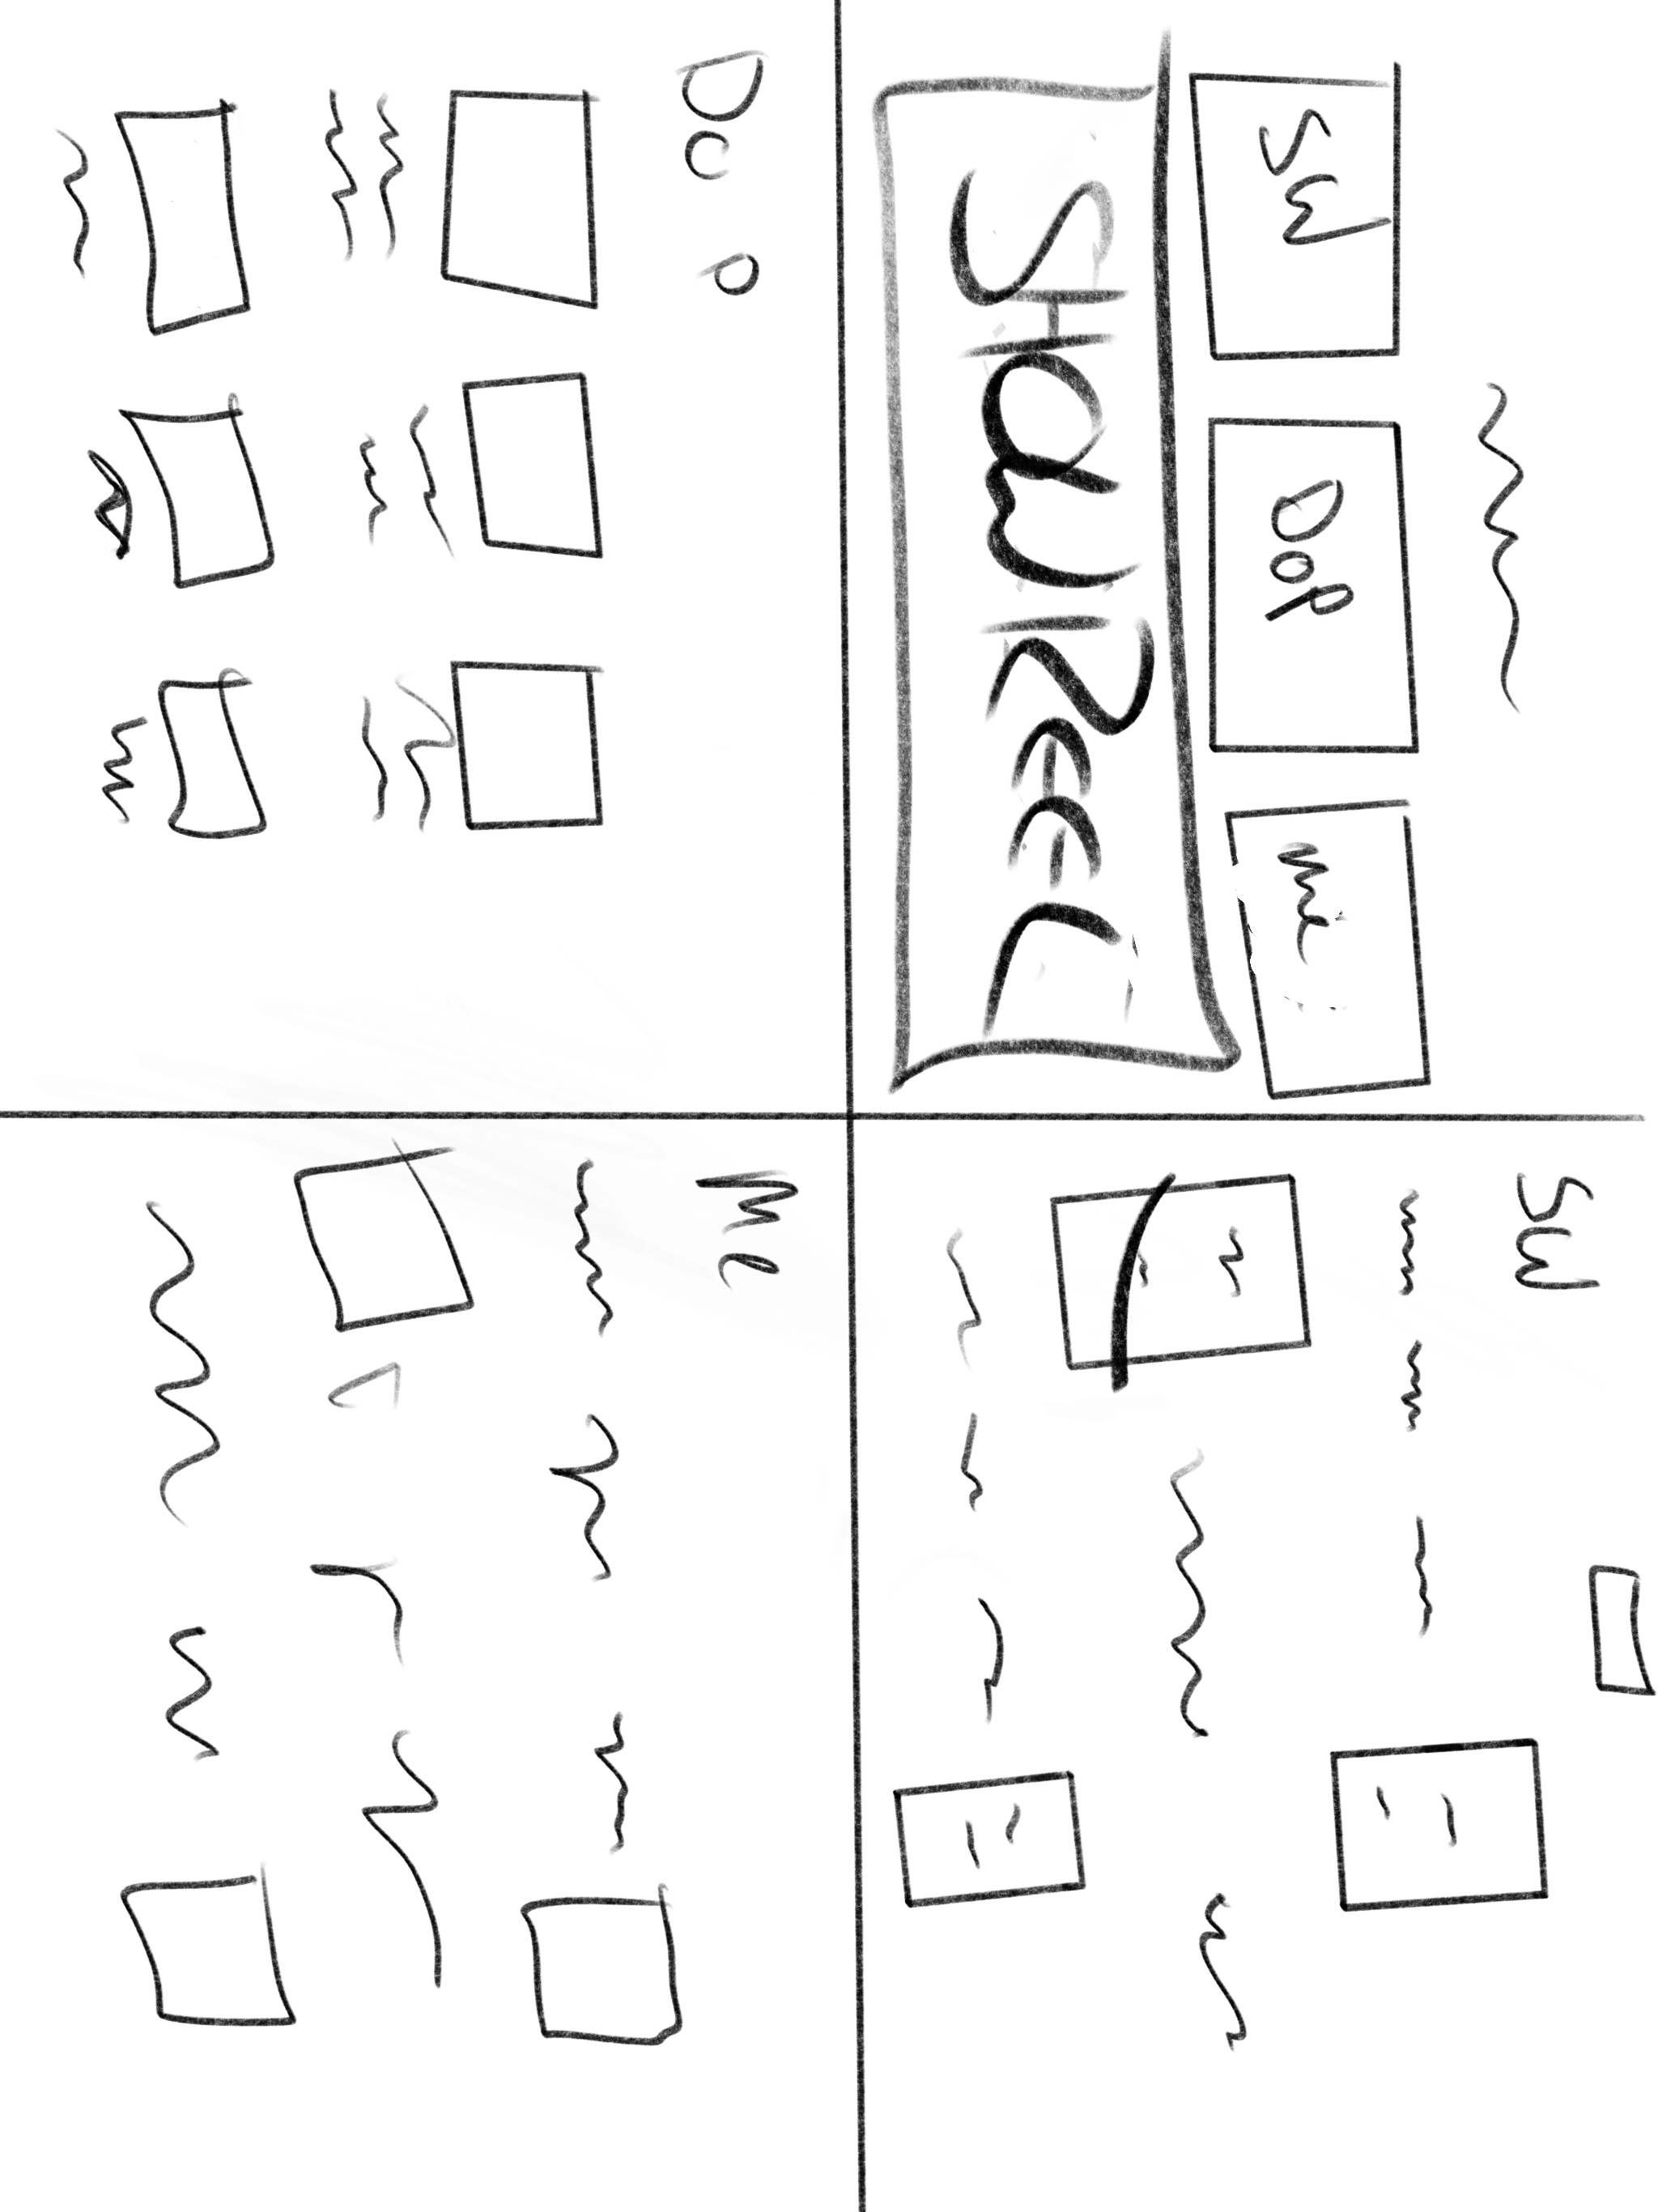 SW
DoP
me
SHOWREEL
SW
DoP
Me